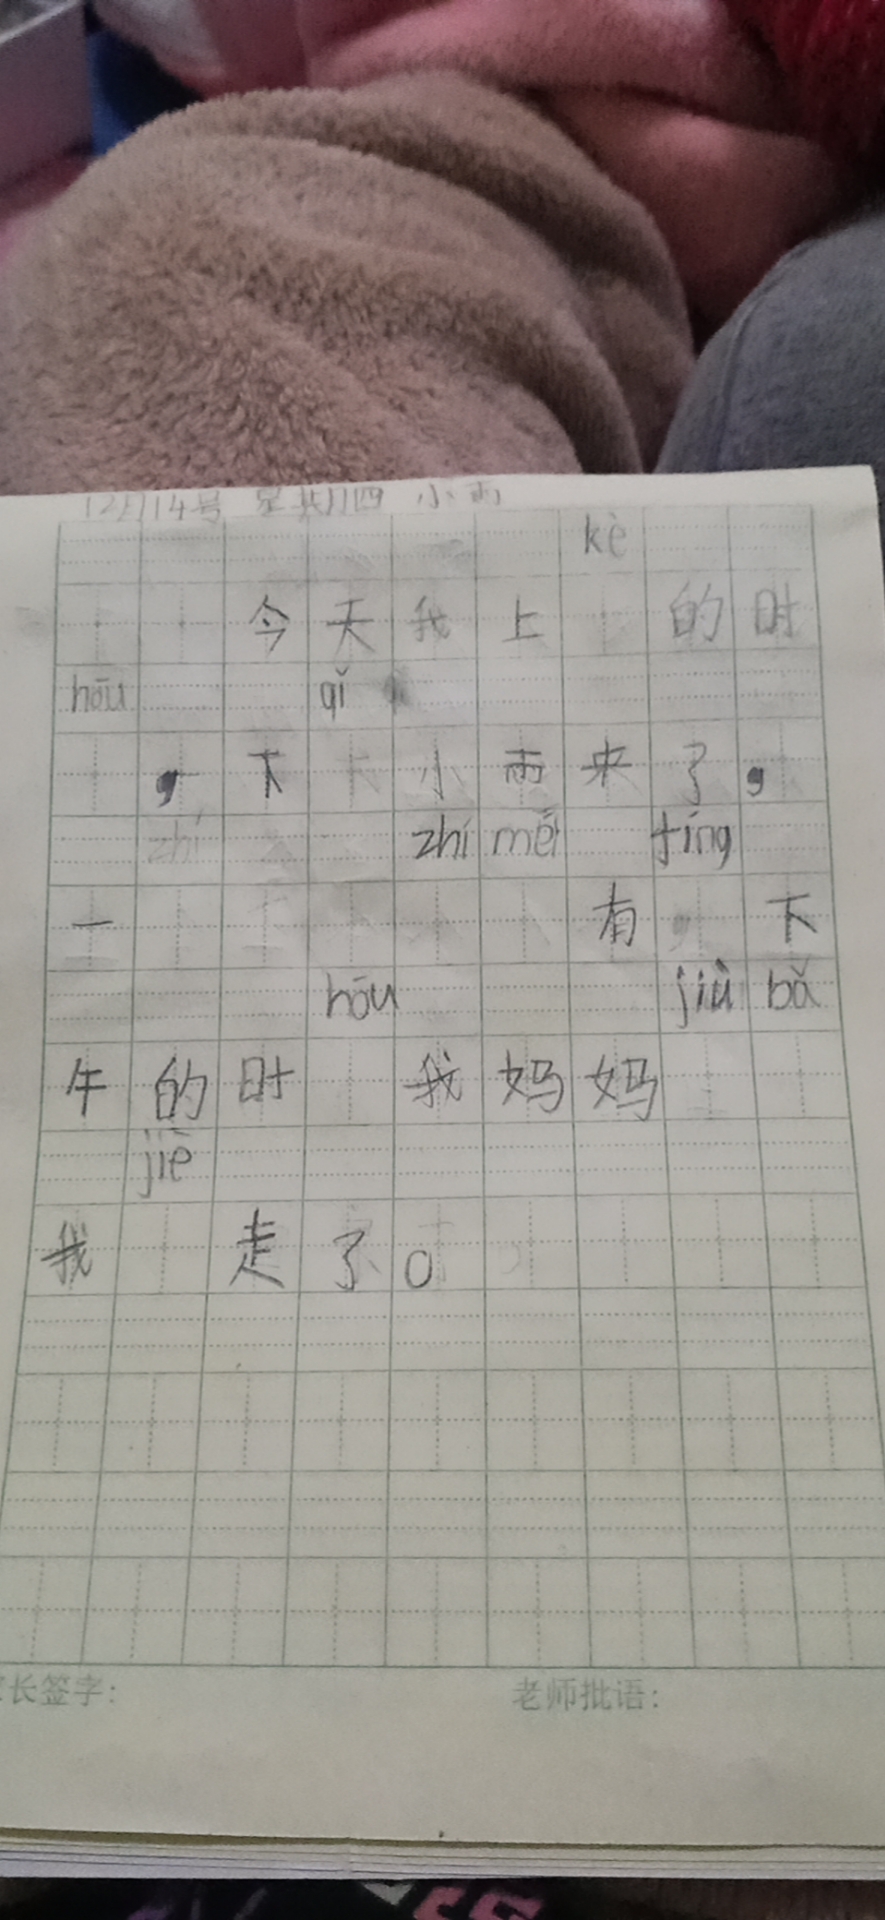 12月14号 星期四 小雨
kè
今天我上 的时
hōu qǐ
，下 小雨来了，
zhí méi tíng
一 有 下
hōu jiù bǎ
午的时 我妈妈
jiē
我 走了。
长签字： 老师批语：